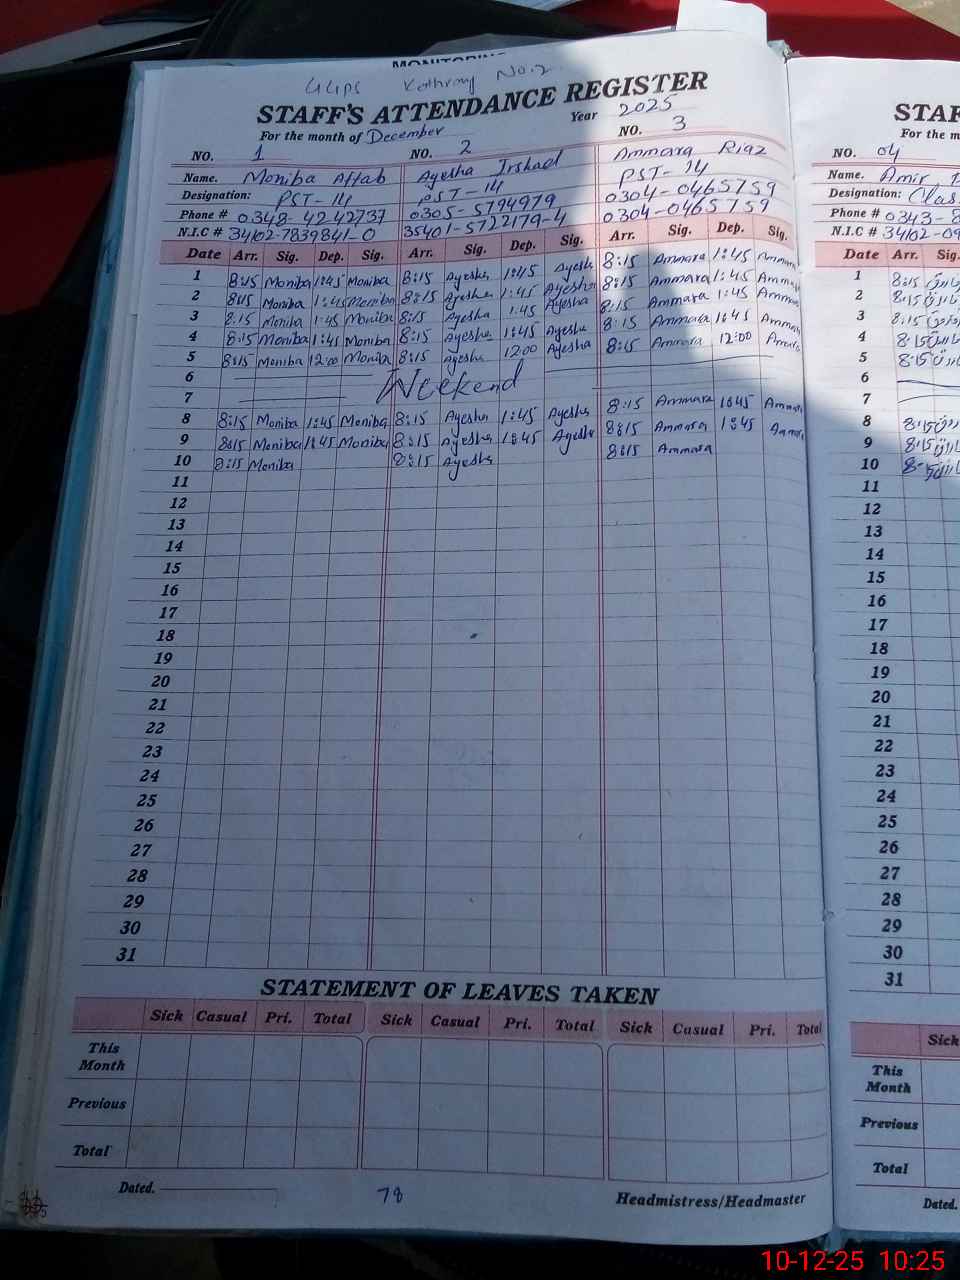 GGPS Kathrang No.2
STAFF'S ATTENDANCE REGISTER
For the month of December Year 2025
NO. 1 NO. 2 NO. 3
Name. Moniba Aftab Ayesha Irshad Ammara Riaz
Designation: PST-14 PST-14 PST-14
Phone # 0348-4242737 0305-5794979 0304-0465759
N.I.C # 34102-7839841-0 35401-5722179-4 0304-0465759
Date Arr. Sig. Dep. Sig. Arr. Sig. Dep. Sig. Arr. Sig. Dep. Sig.
1 8:15 Moniba 1:45 Moniba 8:15 Ayesha 1:45 Ayesha 8:15 Ammara 1:45 Ammara
2 8:15 Moniba 1:45 Moniba 8:15 Ayesha 1:45 Ayesha 8:15 Ammara 1:45 Ammara
3 8:15 Moniba 1:45 Moniba 8:15 Ayesha 1:45 Ayesha 8:15 Ammara 1:45 Ammara
4 8:15 Moniba 1:45 Moniba 8:15 Ayesha 1:45 Ayesha 8:15 Ammara 1:45 Ammara
5 8:15 Moniba 12:00 Moniba 8:15 Ayesha 12:00 Ayesha 8:15 Ammara 12:00 Ammara
6 Weekend
7
8 8:15 Moniba 1:45 Moniba 8:15 Ayesha 1:45 Ayesha 8:15 Ammara 1:45 Ammara
9 8:15 Moniba 1:45 Moniba 8:15 Ayesha 1:45 Ayesha 8:15 Ammara 1:45 Ammara
10 8:15 Moniba 8:15 Ayesha 8:15 Ammara
11
12
13
14
15
16
17
18
19
20
21
22
23
24
25
26
27
28
29
30
31
STATEMENT OF LEAVES TAKEN
Sick Casual Pri. Total Sick Casual Pri. Total Sick Casual Pri. Total
This Month
Previous
Total
Dated. 78 Headmistress/Headmaster
STAF
For the m
NO. 04
Name. Amir
Designation: Clas
Phone # 0343-8
N.I.C # 34102-09
Date Arr. Sig.
1 8:15
2 8:15
3 8:15
4 8:15
5 8:15
6
7
8 8:15
9 8:15
10 8:15
11
12
13
14
15
16
17
18
19
20
21
22
23
24
25
26
27
28
29
30
31
Sick
This Month
Previous
Total
Dated.
10-12-25 10:25